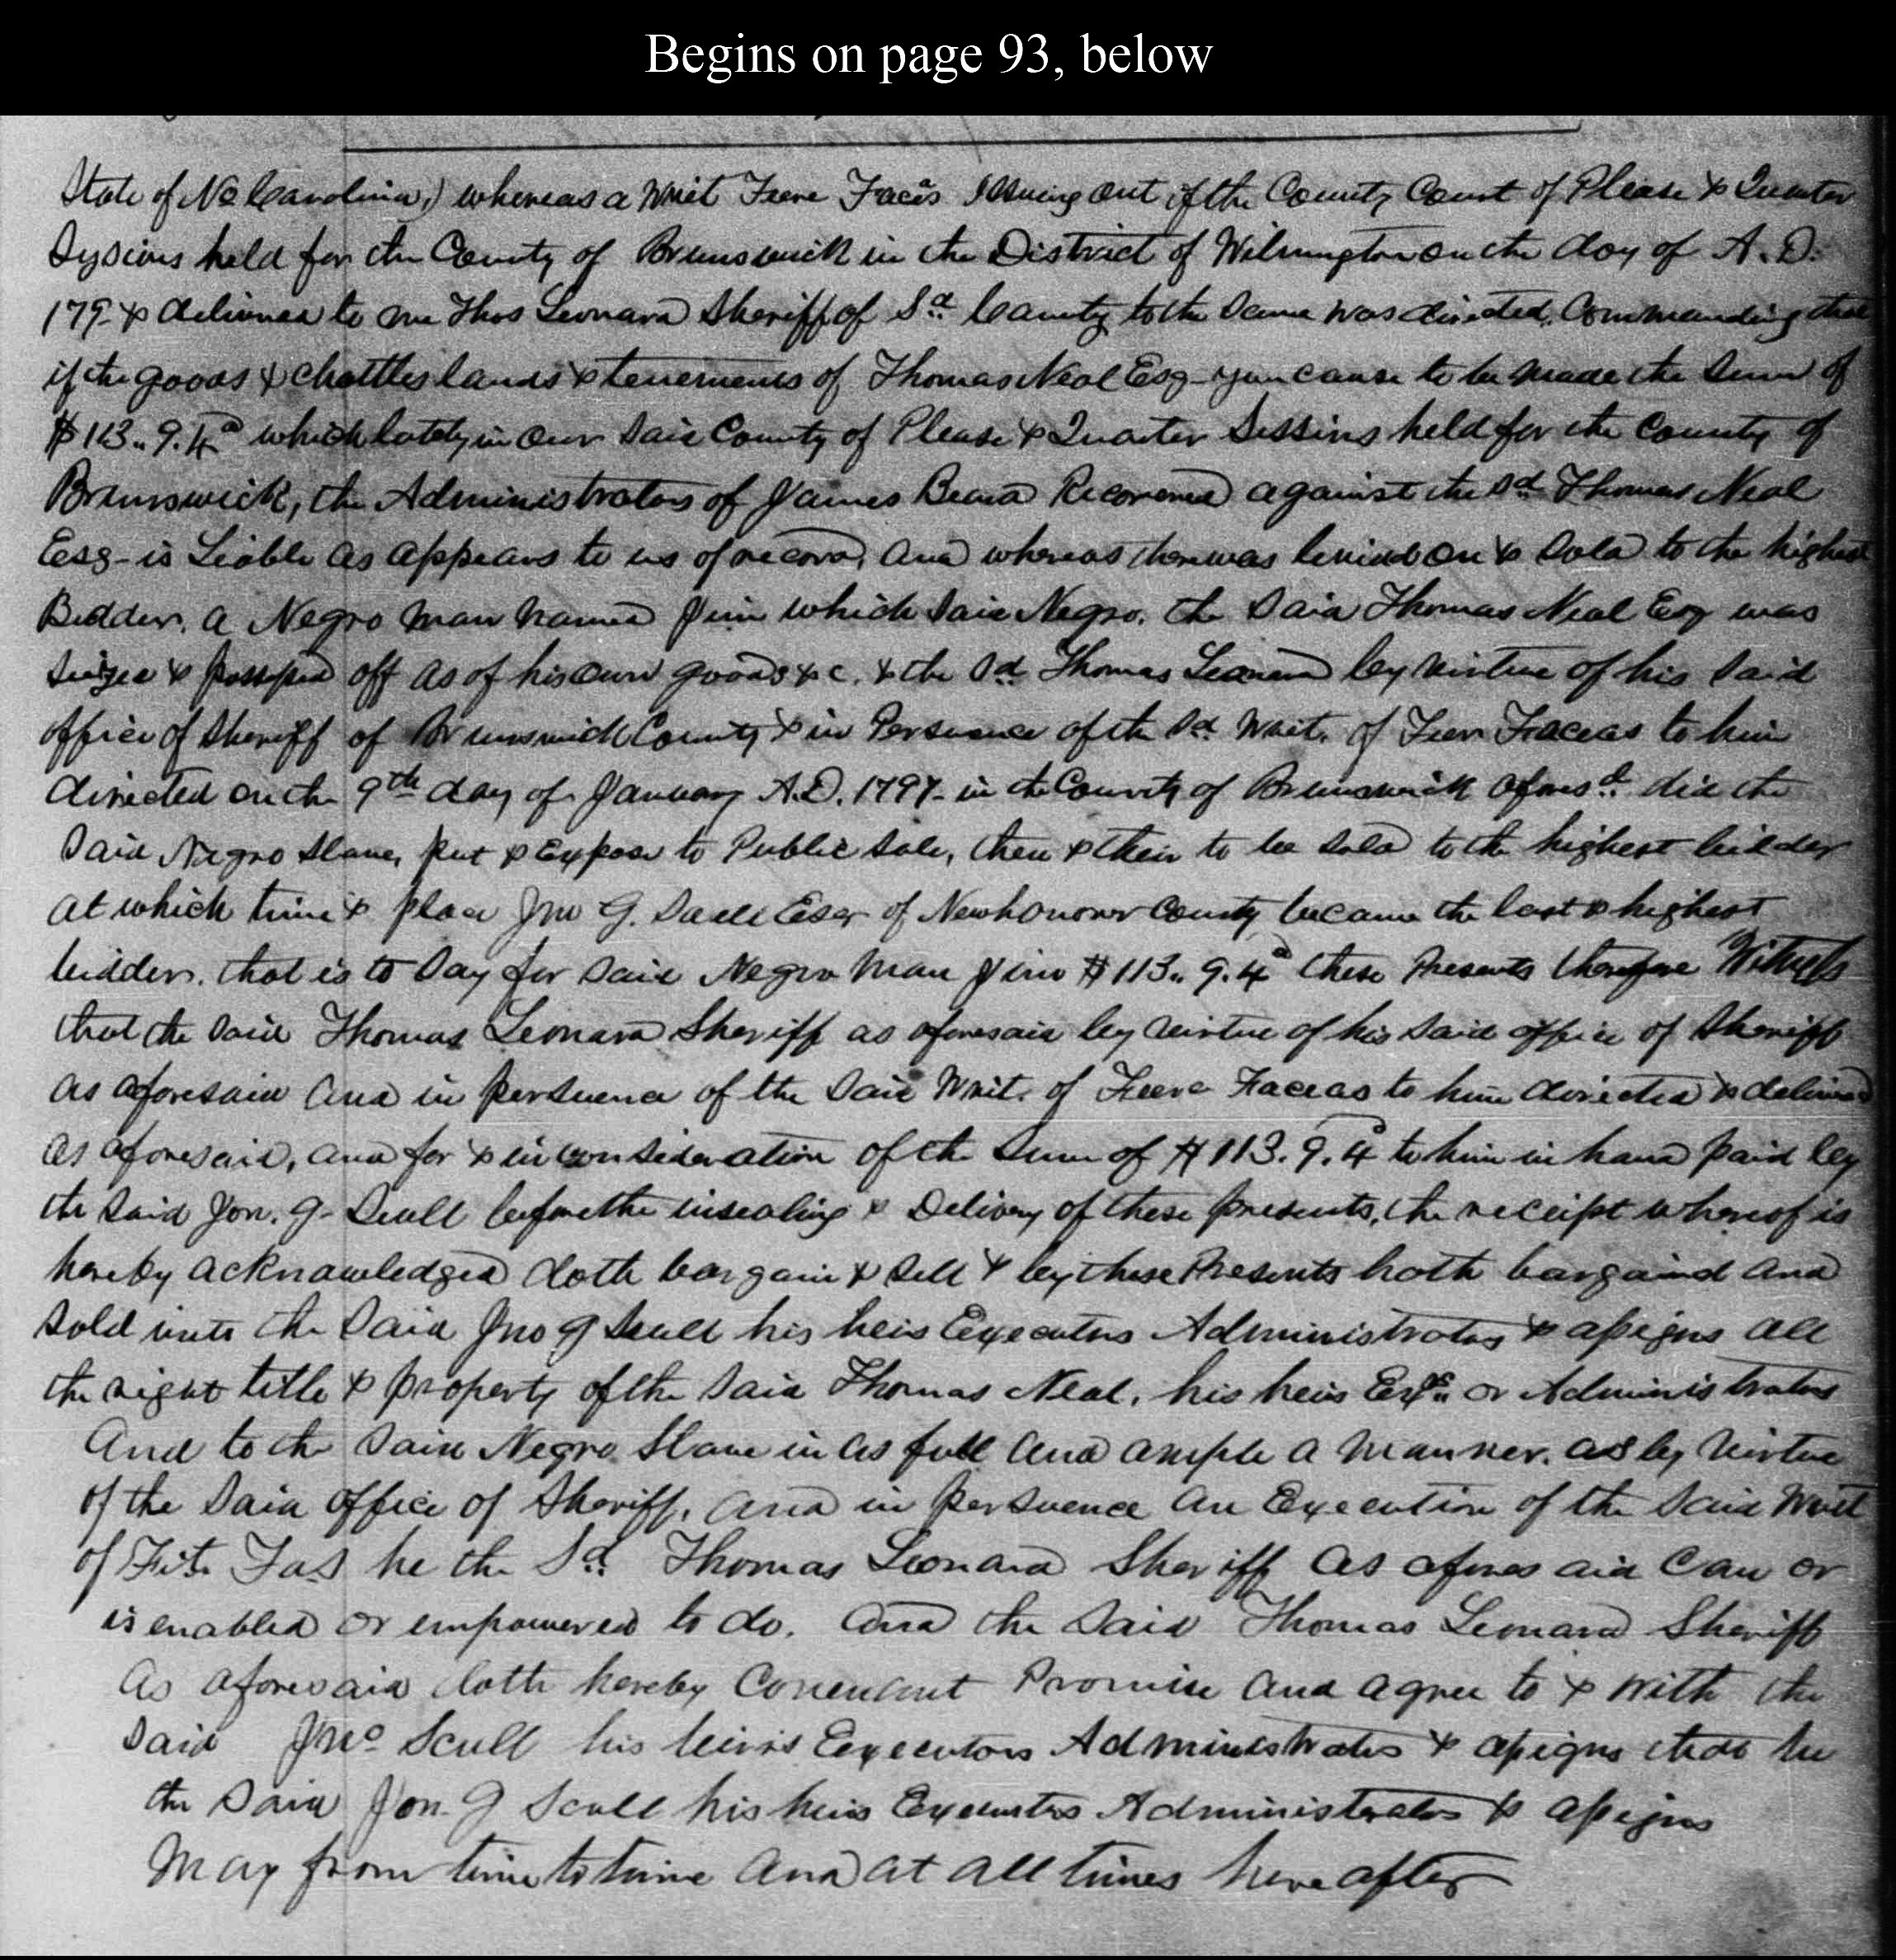 Begins on page 93, below
State of No Carolina,) whereas a Writ Feere Facs Issuing out of the County Court of Please & Quarter
Sessions held for the County of Brunswick in the District of Wilmington on the day of A. D.
179- & delivered to me Thos Leonard Sheriff of Sd. County to the Same was directed, Commanding that
if the goods & chattles lands & tenements of Thomas Neal Esq- you cause to be made the Sum of
$113.. 9. 4d which lately in our Said County of Please & Quarter Sessins held for the County of
Brunswick, the Administrators of James Beard Recovered against the Sd. Thomas Neal
Esq- is Liable as appears to us of record, and whereas there was levied on & Sold to the highest
Bidder, a Negro man named Jim which Said Negro, the Said Thomas Neal Esq was
Seized & possessed off as of his own goods & c. & the Sd. Thomas Leonard by virtue of his Said
office of Sheriff of Brunswick County & in Persuence of the Sd. Writ. of Feer Faceas to him
directed on the 9th day of January A.D. 1797- in the County of Brunswick aforesd. did the
Said Negro Slave, put & Expose to Public Sale, then & their to be Sold to the highest bidder
at which time & place Jno G. Scull Esqr of Newhonover County became the last & highest
bidder. that is to Say for Said Negro Man Jim $113.. 9. 4d these Presents therefore Witness
that the Said Thomas Leonard Sheriff as aforesaid by Virtue of his Said office of Sheriff
as aforesaid and in persuence of the Said Writ. of Feere Faceas to him directed & delivered
as aforesaid, and for & in consideration of the Sum of $113. 9. 4d to him in hand paid by
the Said Jon. G- Scull before the insealing & Delivery of these presents, the receipt whereof is
hereby acknowledged doth bargain & Sell & by these Presents hath bargaind and
Sold unto the Said Jno G Scull his heis Executors Administrators & assigns all
the right title & property of the Said Thomas Neal, his heis Exrs. or Administrators
And to the Said Negro Slave in as full and ample a manner. as by Virtue
of the Said office of Sheriff, and in persuence an Execution of the Said Writ
of Fi. Fas he the Sd. Thomas Leonard Sheriff as afores aid Can or
is enabled or empowered to do. And the Said Thomas Leonard Sheriff
As aforesaid doth hereby Covenant Promise and agree to & with the
Said Jno Scull his heirs Executors Administrators & assigns that he
the Said Jon. G Scull his heis Executors Administrators & assigns
May from time to time and at all times here after